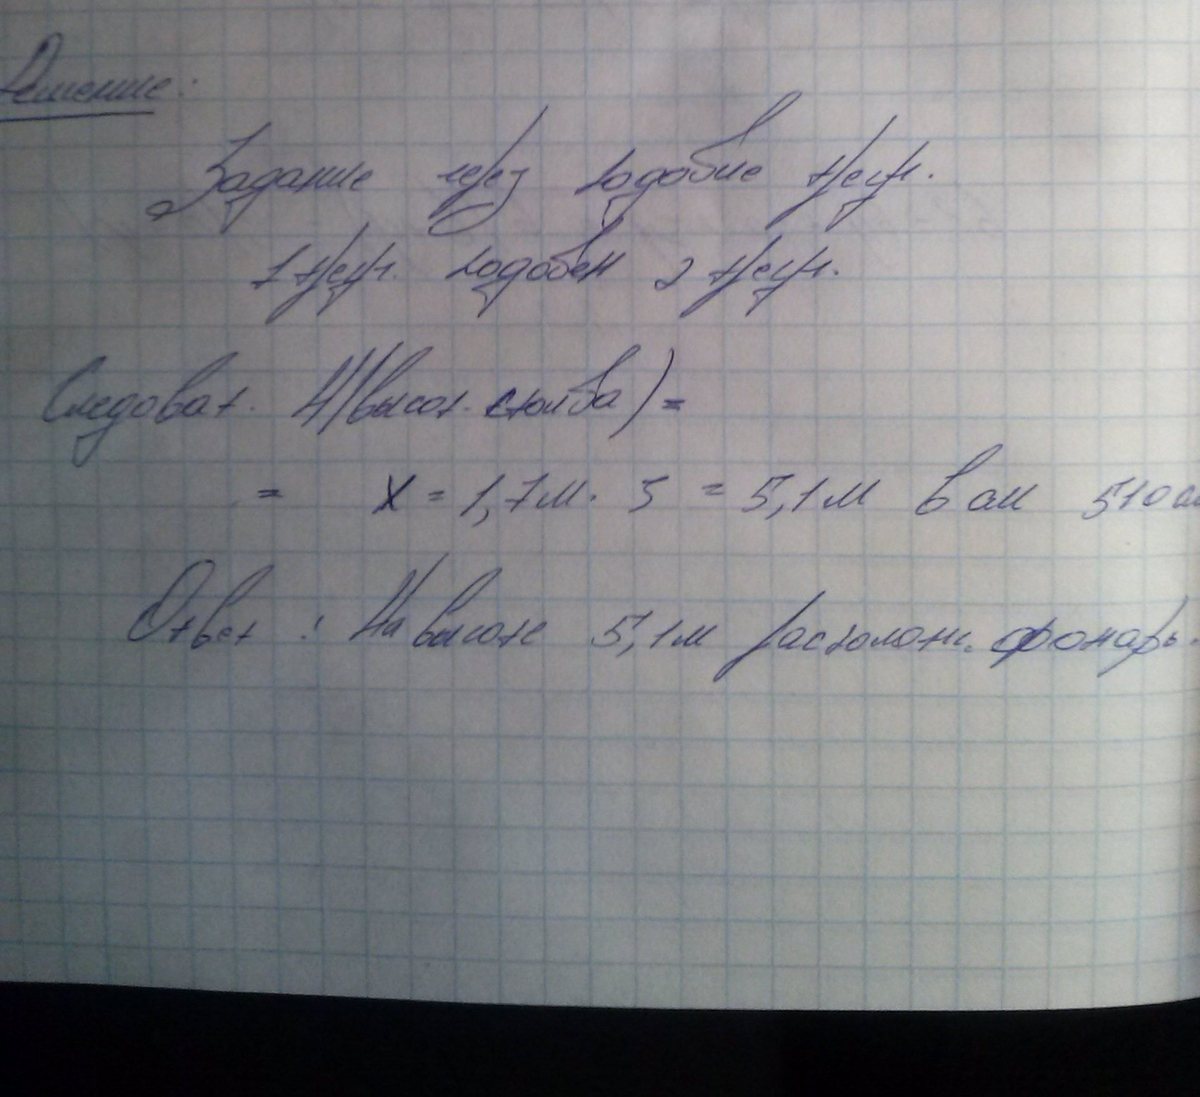 Решение:
Задание через подобие треуг.
1 треуг. подобен 2 треуг.
Следоват. H(высот. столба) =
= x = 1,7м. 3 = 5,1м в см 510 см
Ответ: На высоте 5,1м располож. фонарь.